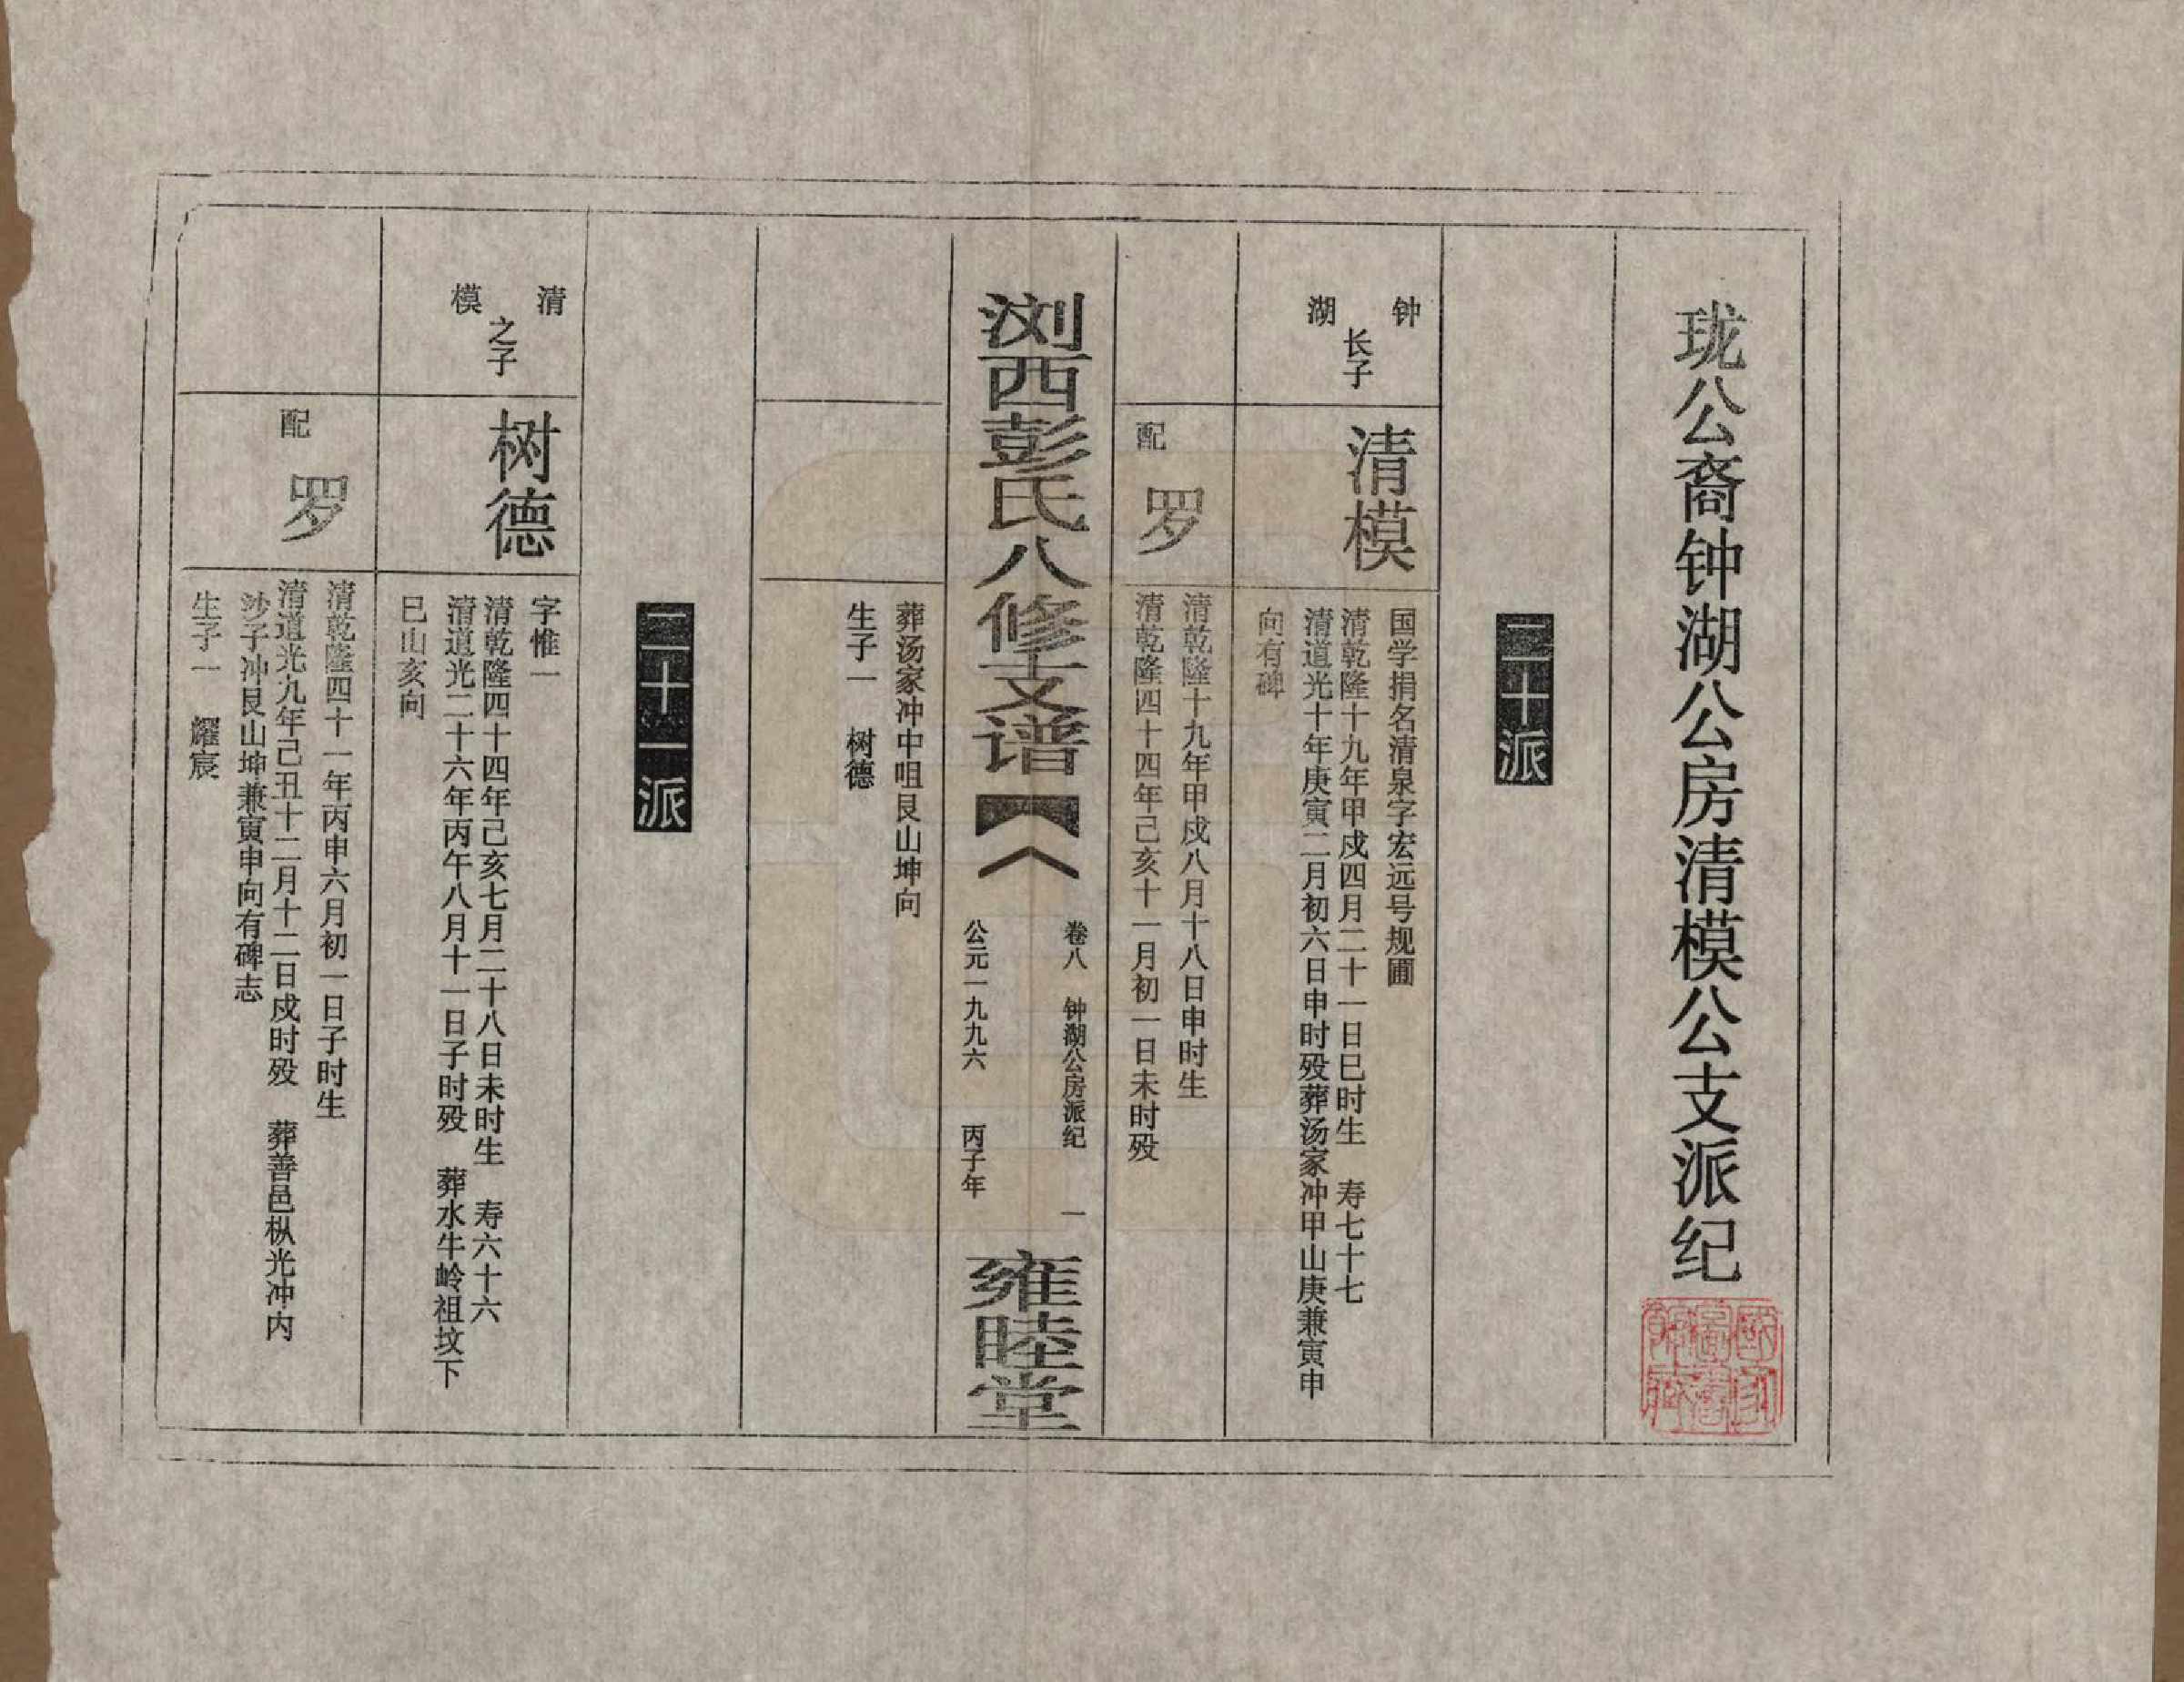 珑公裔钟湖公房清模公支派纪
二十派
钟湖长子
清模
国学捐名清泉字宏远号规圃
清乾隆十九年甲戍四月二十一日巳时生 寿七十七
清道光十年庚寅二月初六日申时殁葬汤家冲甲山庚兼寅申
向有碑
配 罗
清乾隆十九年甲戍八月十八日申时生
清乾隆四十四年己亥十一月初一日未时殁
浏西彭氏八修支谱
卷八 钟湖公房派纪 一
公元一九九六 丙子年
雍睦堂
葬汤家冲中咀艮山坤向
生子一 树德
二十一派
清模之子
树德
字惟一
清乾隆四十四年己亥七月二十八日未时生 寿六十六
清道光二十六年丙午八月十一日子时殁 葬水牛岭祖坟下
巳山亥向
配 罗
清乾隆四十一年丙申六月初一日子时生
清道光九年己丑十二月十二日戍时殁 葬善邑枞光冲内
沙子冲艮山坤兼寅申向有碑志
生子一 耀宸